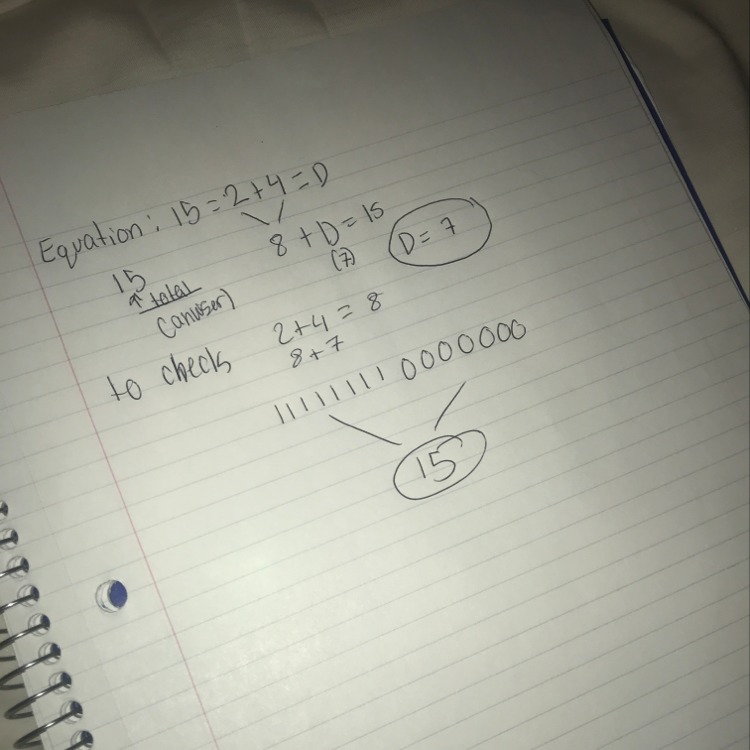 Equation: 15 = 2 + 4 = D
8 + D = 15
(7)
D = 7
15
↑ total
(answer)
to checks
2 + 4 = 8
8 + 7
11111111 0000000
15